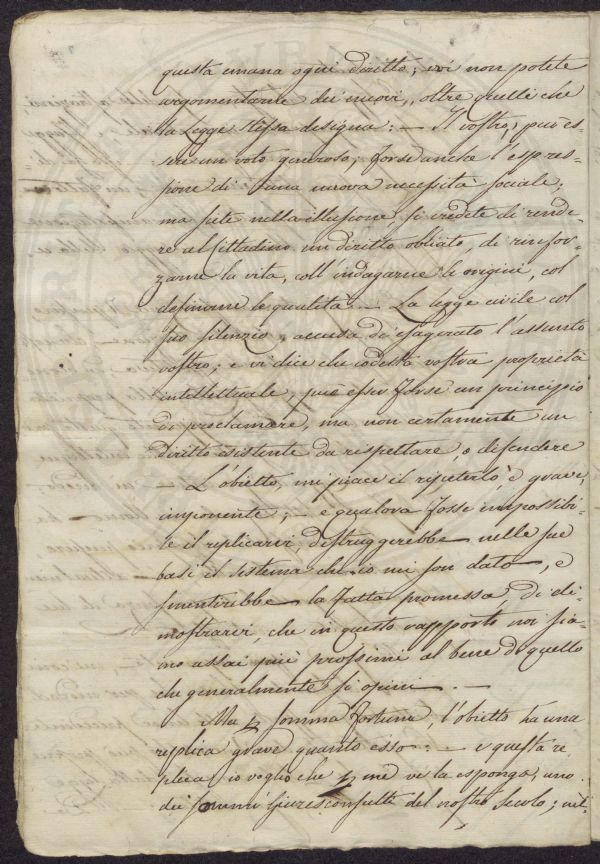 questa emana ogni diritto; voi non potete
argomentarne dei nuovi, oltre quelli che
la legge stessa designa: — Il vostro, può es-
sere un voto generoso, forse anche l'espres-
sione di una nuova necessità sociale;
ma siete nella illusione, si credete di rende-
re al Cittadino un diritto obliato, di rinfor-
zarne la vita, coll'indagarne le origini, col
definirne le qualità. — La legge civile col
suo silenzio, accusa di esagerato l'assunto
vostro; e vi dice che codesta vostra proprietà
intellettuale, può esser forse un principio
di proclamare, ma non certamente un
diritto esistente da rispettare, o difendere
— L'obietto, mi piace il ripeterlo, è grave,
imponente; — e qualora fosse impossibi-
le il replicarvi, distruggerebbe nelle sue
basi il sistema che io mi son dato, e
smentirebbe la fatta promessa di di-
mostrarvi, che in questo rapporto noi sia-
mo assai più prossimi al bene di quello
che generalmente si opini. —
Ma p somma fortuna, l'obietto ha una
replica grave quanto esso: — e questa re
plica, io voglio che p me ve la esponga, uno
dei sommi giuresconsulti del nostro secolo;